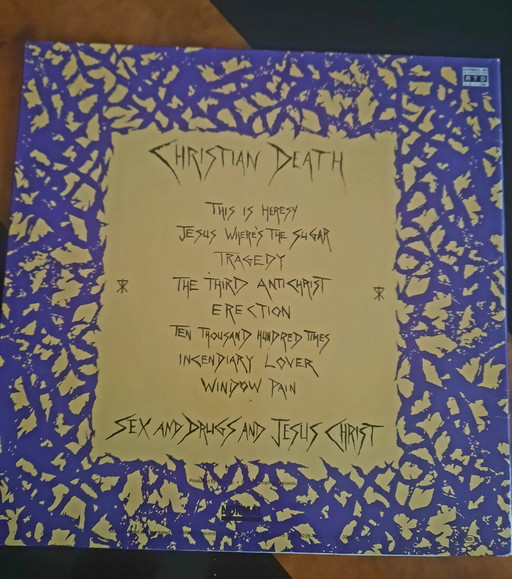 RTD
CHRISTIAN DEATH
THIS IS HERESY
JESUS WHERE'S THE SUGAR
TRAGEDY
THE THIRD ANTICHRIST
ERECTION
TEN THOUSAND HUNDRED TIMES
INCENDIARY LOVER
WINDOW PAIN
SEX AND DRUGS AND JESUS CHRIST
NORMAL